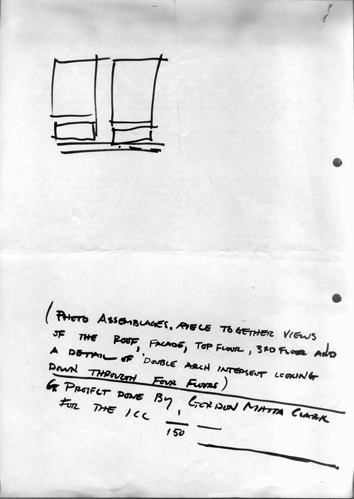 (PHOTO ASSEMBLAGES, PIECE TOGETHER VIEWS
OF THE ROOF, FACADE, TOP FLOOR, 3RD FLOOR AND
A DETAIL OF "DOUBLE ARCH INTERSECT LOOKING
DOWN THROUGH FOUR FLOORS)
PROJECT DONE BY, GORDON MATTA CLARK
FOR THE ICC
150